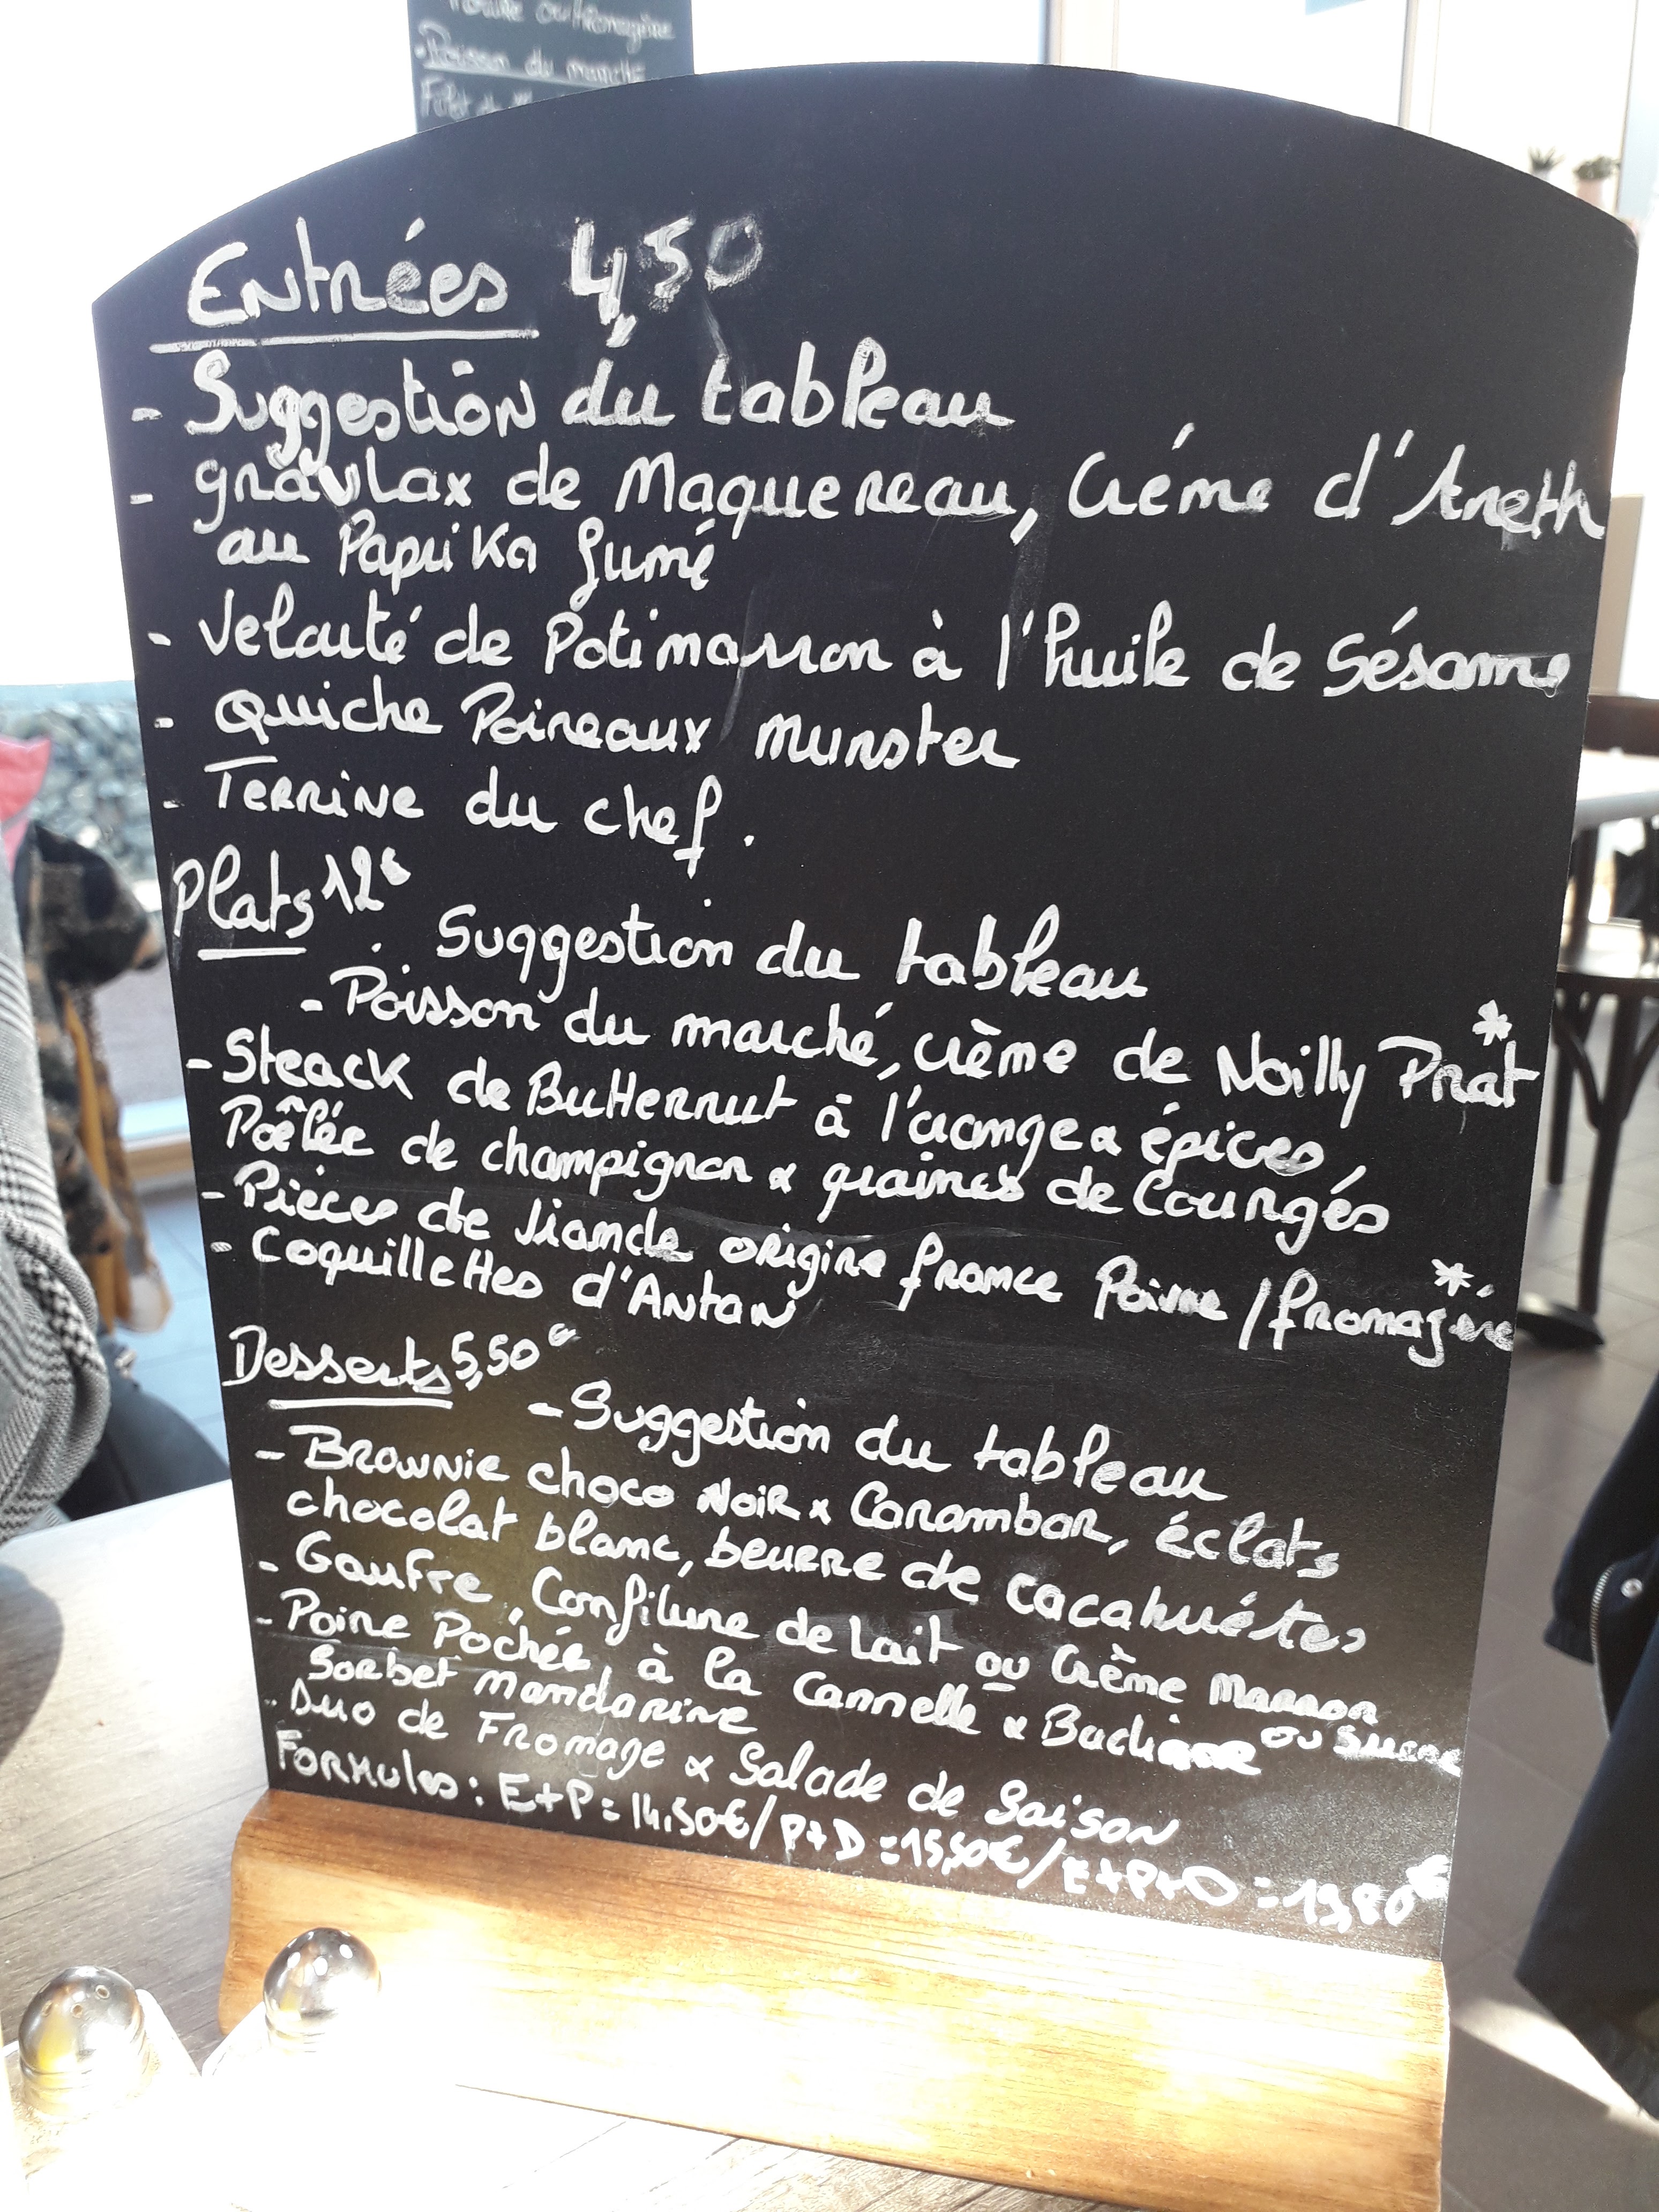 Poisson du marché
Entrées 4,50
- Suggestion du tableau
- gravlax de Maquereau, Crème d'Aneth
au Paprika fumé
- Velouté de Potimarron à l'huile de Sésame
- Quiche Poireaux munster
- Terrine du chef.
Plats 12€
- Suggestion du tableau
- Poisson du marché, crème de Noilly Prat*
- Steack de Butternut à l'orange & épices,
Poêlée de champignon & graines de Courgés
- Pièces de Viande origine france Poivre / fromagère*
- Coquillettes d'Antan
Desserts 5,50€
- Suggestion du tableau
- Brownie choco Noir & Carambar, éclats
chocolat blanc, beurre de cacahuétes
- Gaufre, Confiture de Lait ou Crème Marron
ou Sucre
- Poire Pochée, à la Cannelle &
Sorbet Mandarine
- Duo de Fromage & Salade de Saison
Formules : E+P = 14,50€ / P+D = 15,50€ / E+P+D =